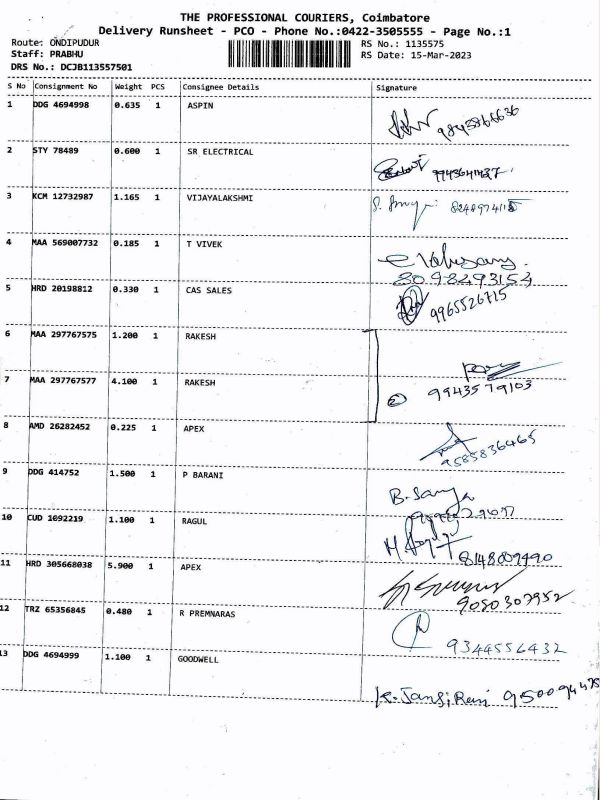 THE PROFESSIONAL COURIERS, Coimbatore
Delivery Runsheet - PCO - Phone No.:0422-3505555 - Page No.:1
Route: ONDIPUDUR RS No.: 1135575
Staff: PRABHU RS Date: 15-Mar-2023
DRS No.: DCJB113557501
S No Consignment No Weight PCS Consignee Details Signature
1 DDG 4694998 0.635 1 ASPIN
2 STY 78489 0.600 1 SR ELECTRICAL
9943641437
3 KCM 12732987 1.165 1 VIJAYALAKSHMI
4 MAA 569007732 0.185 1 T VIVEK
5 HRD 20198812 0.330 1 CAS SALES
9965526715
6 MAA 297767575 1.200 1 RAKESH
7 MAA 297767577 4.100 1 RAKESH
2 9943579103
8 AMD 26282452 0.225 1 APEX
9585836465
9 DDG 414752 1.500 1 P BARANI
10 CUD 1092219 1.100 1 RAGUL
8148009490
11 HRD 305668038 5.900 1 APEX
9080307952
12 TRZ 65356845 0.480 1 R PREMNARAS
9344556432
13 DDG 4694999 1.100 1 GOODWELL